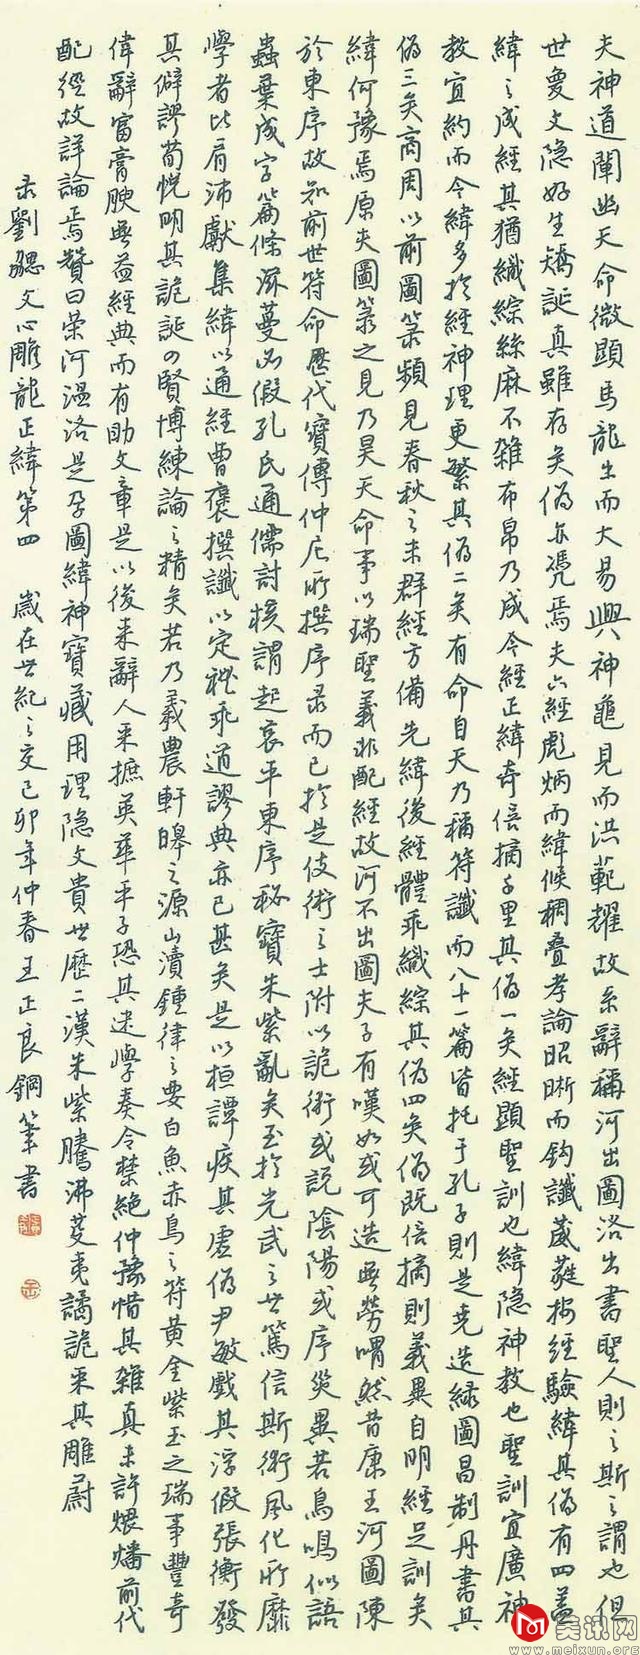 夫神道闡幽天命微顯馬龍出而大易興神龜見而洪範耀故系辭稱河出圖洛出書聖人則之斯之謂也但
世夐文隐好生矯誕真雖存矣偽亦憑焉夫六經彪炳而緯候稠疊孝論昭晰而鈎讖葳蕤按經驗緯其偽有四蓋
緯之成經其猶織綜絲麻不雜布帛乃成今經正緯奇倍摘千里其偽一矣經顯聖訓也緯隐神教也聖訓宜廣神
教宜約而今緯多於經神理更繁其偽二矣有命自天乃稱符讖而八十一篇皆托于孔子則是堯造绿圖昌制丹書其
偽三矣商周以前圖箓頻見春秋之末群經方備先緯後經體乖織綜其偽四矣偽既倍摘則義異自明經足訓矣
緯何豫焉原夫圖箓之見乃昊天命事以瑞聖義非配經故河不出圖夫子有嘆如或可造無勞喟然昔康王河圖陳
於東序故知前世符命歷代寶傳仲尼所撰序录而已於是伎術之士附以詭術或説陰陽或序災異若鳥鳴似語
蟲葉成字篇條滋蔓必假孔氏通儒討核謂起哀平東序秘寶朱紫亂矣至於光武之世篤信斯術風化所靡
學者比肩沛獻集緯以通經曹褒撰讖以定禮乖道謬典亦已甚矣是以桓譚疾其虚偽尹敏戲其浮假張衡發
其僻謬荀悦明其詭誕四賢博練論之精矣若乃羲農軒皞之源山瀆鍾律之要白魚赤烏之符黄金紫玉之瑞事豐奇
偉辭富膏腴無益經典而有助文章是以後來辭人采摭英華平子恐其迷學奏令禁絶仲豫惜其雜真未許煨燔前代
配經故詳論焉贊曰榮河温洛是孕圖緯神寶藏用理隐文貴世歷二漢朱紫騰沸芟夷譎詭采其雕蔚
录劉勰文心雕龍正緯第四 歲在世紀之交己卯年仲春王正良鋼筆書
美讯网
www.meixun.org